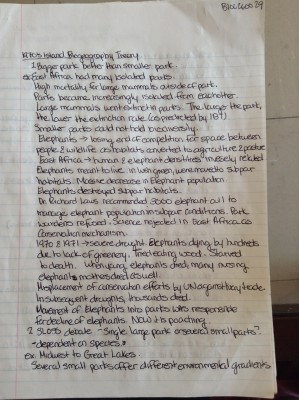 BioCons 29
1970s Island Biogeography Theory
1 Bigger park better than smaller park.
ex: East Africa had many isolated parks.
High mortality for large mammals outside of park.
Parks became increasingly isolated from each other.
Large mammals went extinct in parks. The larger the park,
the lower the extinction rate. (as predicted by IBT)
Smaller parks could not hold biodiversity.
Elephants → losing end of competition for space between
people & wildlife as habitats converted to agriculture & pasture
East Africa → human & elephant densities inversely related
Elephants meant to live in were moved to subpar
habitats. Massive decrease in Elephant population
Elephants destroyed subpar habitats.
Dr. Richard Laws recommended 3000 elephant cull to
manage elephant population in subpar conditions. Park
wardens refused. Science rejected in East Africa as
conservation mechanism.
1970 & 1971 → severe drought. Elephants dying by hundreds
due to lack of greenery. Tried eating wood. Starved
to death. When young elephants died, many nursing
elephant mothers died as well.
Misplacement of conservation efforts by UN against ivory trade.
In subsequent droughts, thousands died.
Movement of Elephants into parks was responsible
for decline of elephants. NOW it is poaching
2 SLOSS debate - Single large park or several small parks?
-dependent on species.
ex: Midwest to Great Lakes
Several small parks offer different environmental gradients